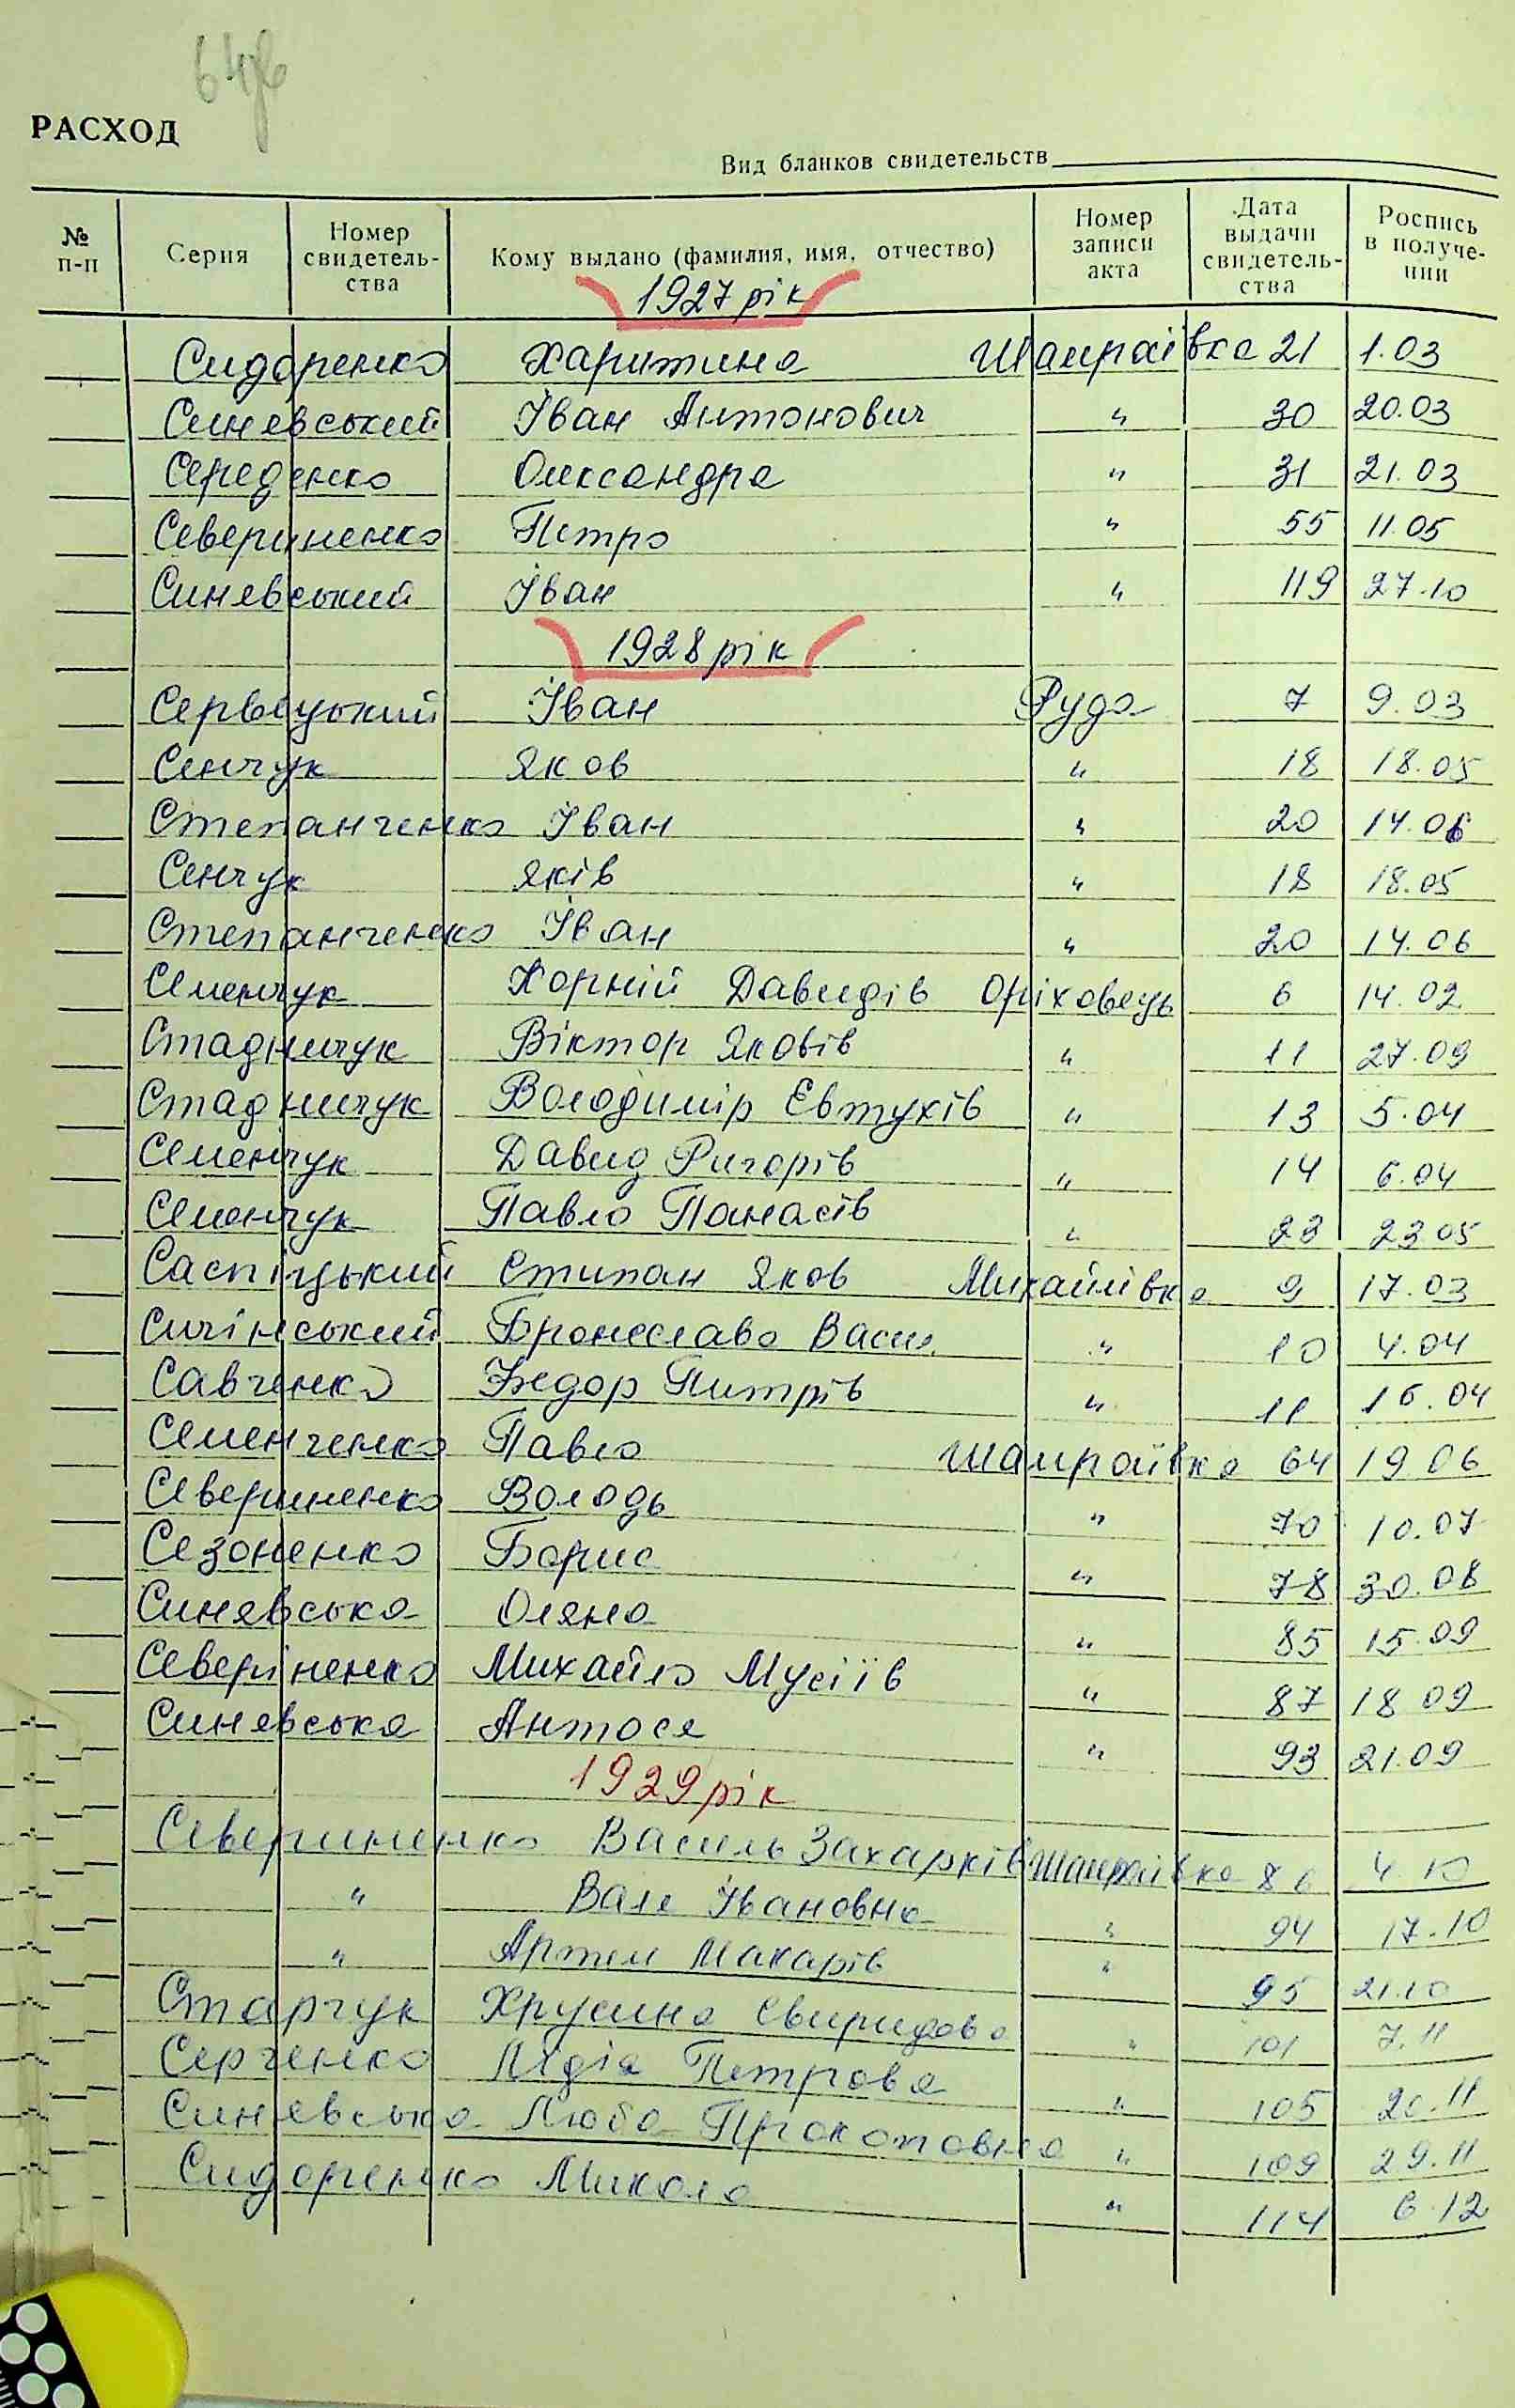 РАСХОД
Вид бланков свидетельств
№ п-п Серия Номер свидетель- ства Кому выдано (фамилия, имя, отчество) Номер записи акта Дата выдачи свидетель- ства Роспись в получе- нии
1927 рік
Сидоренко Харитина Шамраївка 21 1.03
Синявський Іван Антонович " 30 20.03
Середенко Олександра " 31 21.03
Севериненко Петро " 55 11.05
Синявський Іван " 119 27.10
1928 рік
Іван Руда 7 9.03
Сенчук Яков " 18 18.05
Степанченко Іван " 20 14.06
Сенчук Яків " 18 18.05
Степанченко Іван " 20 14.06
Семенчук Корній Давидів Оріховець 6 14.02
Стаднічук Віктор Яковів " 11 27.09
Стаднічук Володимір Євтухів " 13 5.04
Семенчук Давид Ригорів " 14 6.04
Семенчук Павло Панасів " 23 23 05
Саспіцький Стипан Яков Михайлівка 9 17.03
Сичінський Бронеслава Васил. " 10 4.04
Савченко Федор Питрів " 11 16.04
Семенченко Павло Шамраївка 64 19 06
Севериненко Володь " 70 10.07
Сезоненко Борис " 78 30.08
Синявська Оляна " 85 15.09
Севериненко Михайло Мусіїв " 87 18 09
Синявська Антося " 93 21.09
1929 рік
Севериненко Василь Захарків Шамраївка 4.10
" Валя Івановна " 94 17.10
" Артем Макарів " 95 21.10
Старчук Свиридова " 101 7.11
Серченко Лідія Петрова " 105 20.11
Синявська Люба Прокоповна " 109 29.11
Сидоренко Микола " 114 6.12